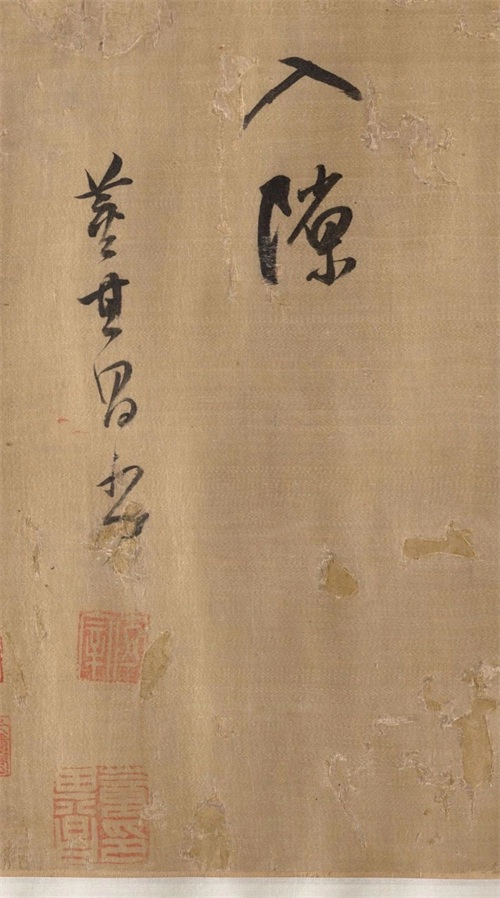 入隙
董其昌書